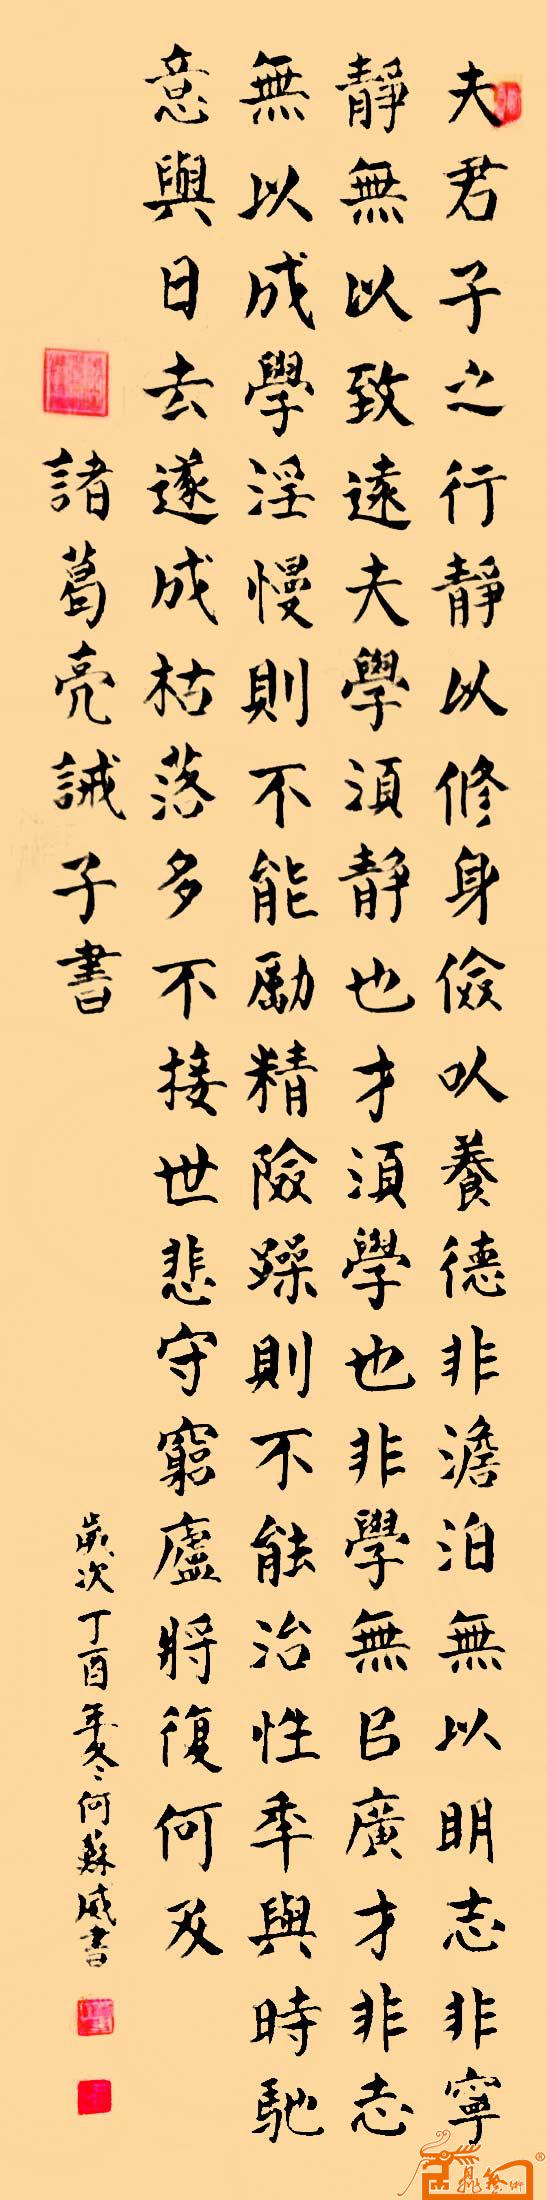 夫君子之行靜以修身儉以養德非澹泊無以明志非寧
靜無以致遠夫學須靜也才須學也非學無㠯廣才非志
無以成學淫慢則不能勵精險躁則不能治性年與時馳
意與日去遂成枯落多不接世悲守窮廬將復何及
諸葛亮誡子書
歲次丁酉年冬何蘇成書